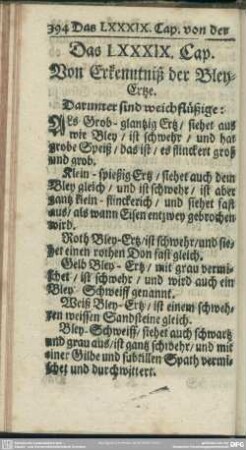 394 Das LXXXIX. Cap. von der
Das LXXXIX. Cap.
Von Erkenntniß der Bley-
Ertze.
Darunter sind weichflüßige:
Als Grob-glantzig Ertz / siehet aus
wie Bley / ist schwehr / und hat
grobe Speiß / das ist / es flinckert groß
und grob.
Klein-spießig Ertz / siehet auch dem
Bley gleich / und ist schwehr / ist aber
gantz klein-flinckerich / und siehet fast
aus / als wann Eisen entzwey gebrochen
wird.
Roth Bley-Ertz / ist schwehr / und sie-
het einen rothen Don fast gleich.
Gelb Bley-Ertz / mit grau vermi-
schet / ist schwehr / und wird auch ein
Bley Schweiff genannt.
Weiß Bley-Ertz / ist einem schweh-
ren weissen Sandsteine gleich.
Bley-Schweiff / siehet auch schwartz
und grau aus / ist gantz schwehr / und mit
einer Gilbe und subtilen Spath vermi-
schet und durchwittert.